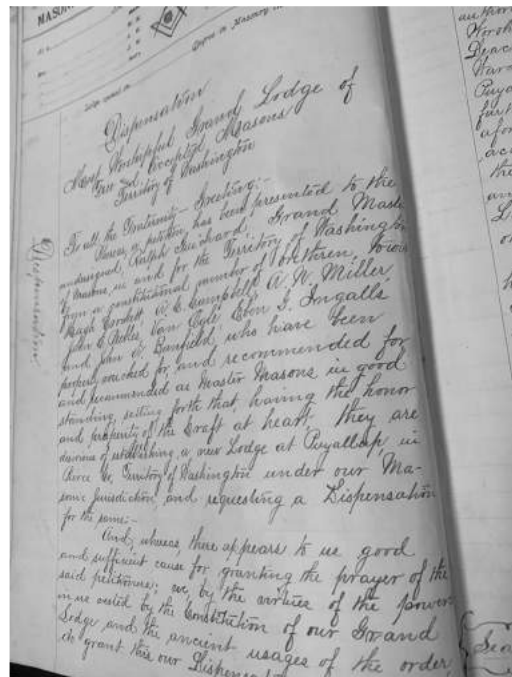 MASON
Degree in Masonry
Lodge opened on
Dispensation
Dispensation
Most Worshipful Grand Lodge of
Free and Accepted Masons
Territory of Washington
To all the Fraternity – Greeting:–
Whereas, a petition has been presented to the
undersigned, Ralph Guichard, Grand Master
of Masons, in and for the Territory of Washington
from a constitutional number of brethren, to wit
Hugh Corbett A. C. Campbell, A. W. Miller,
John C. Van Ogle, Eben G. Ingalls
and John F. Banfield, who have been
properly vouched for, and recommended for
and recommended as Master Masons in good
standing, setting forth that, having the honor
and prosperity of the Craft at heart, they are
desirous of establishing a new Lodge at Puyallup in
Pierce Co. Territory of Washington under our Ma-
sonic Jurisdiction, and requesting a Dispensation
for the same:–
And, whereas, there appears to us good
and sufficient cause for granting the prayer of the
said petitioners; we by the virtue of the power
in us vested by the Constitution of our Grand
Lodge and the ancient usages of the order,
do grant this our